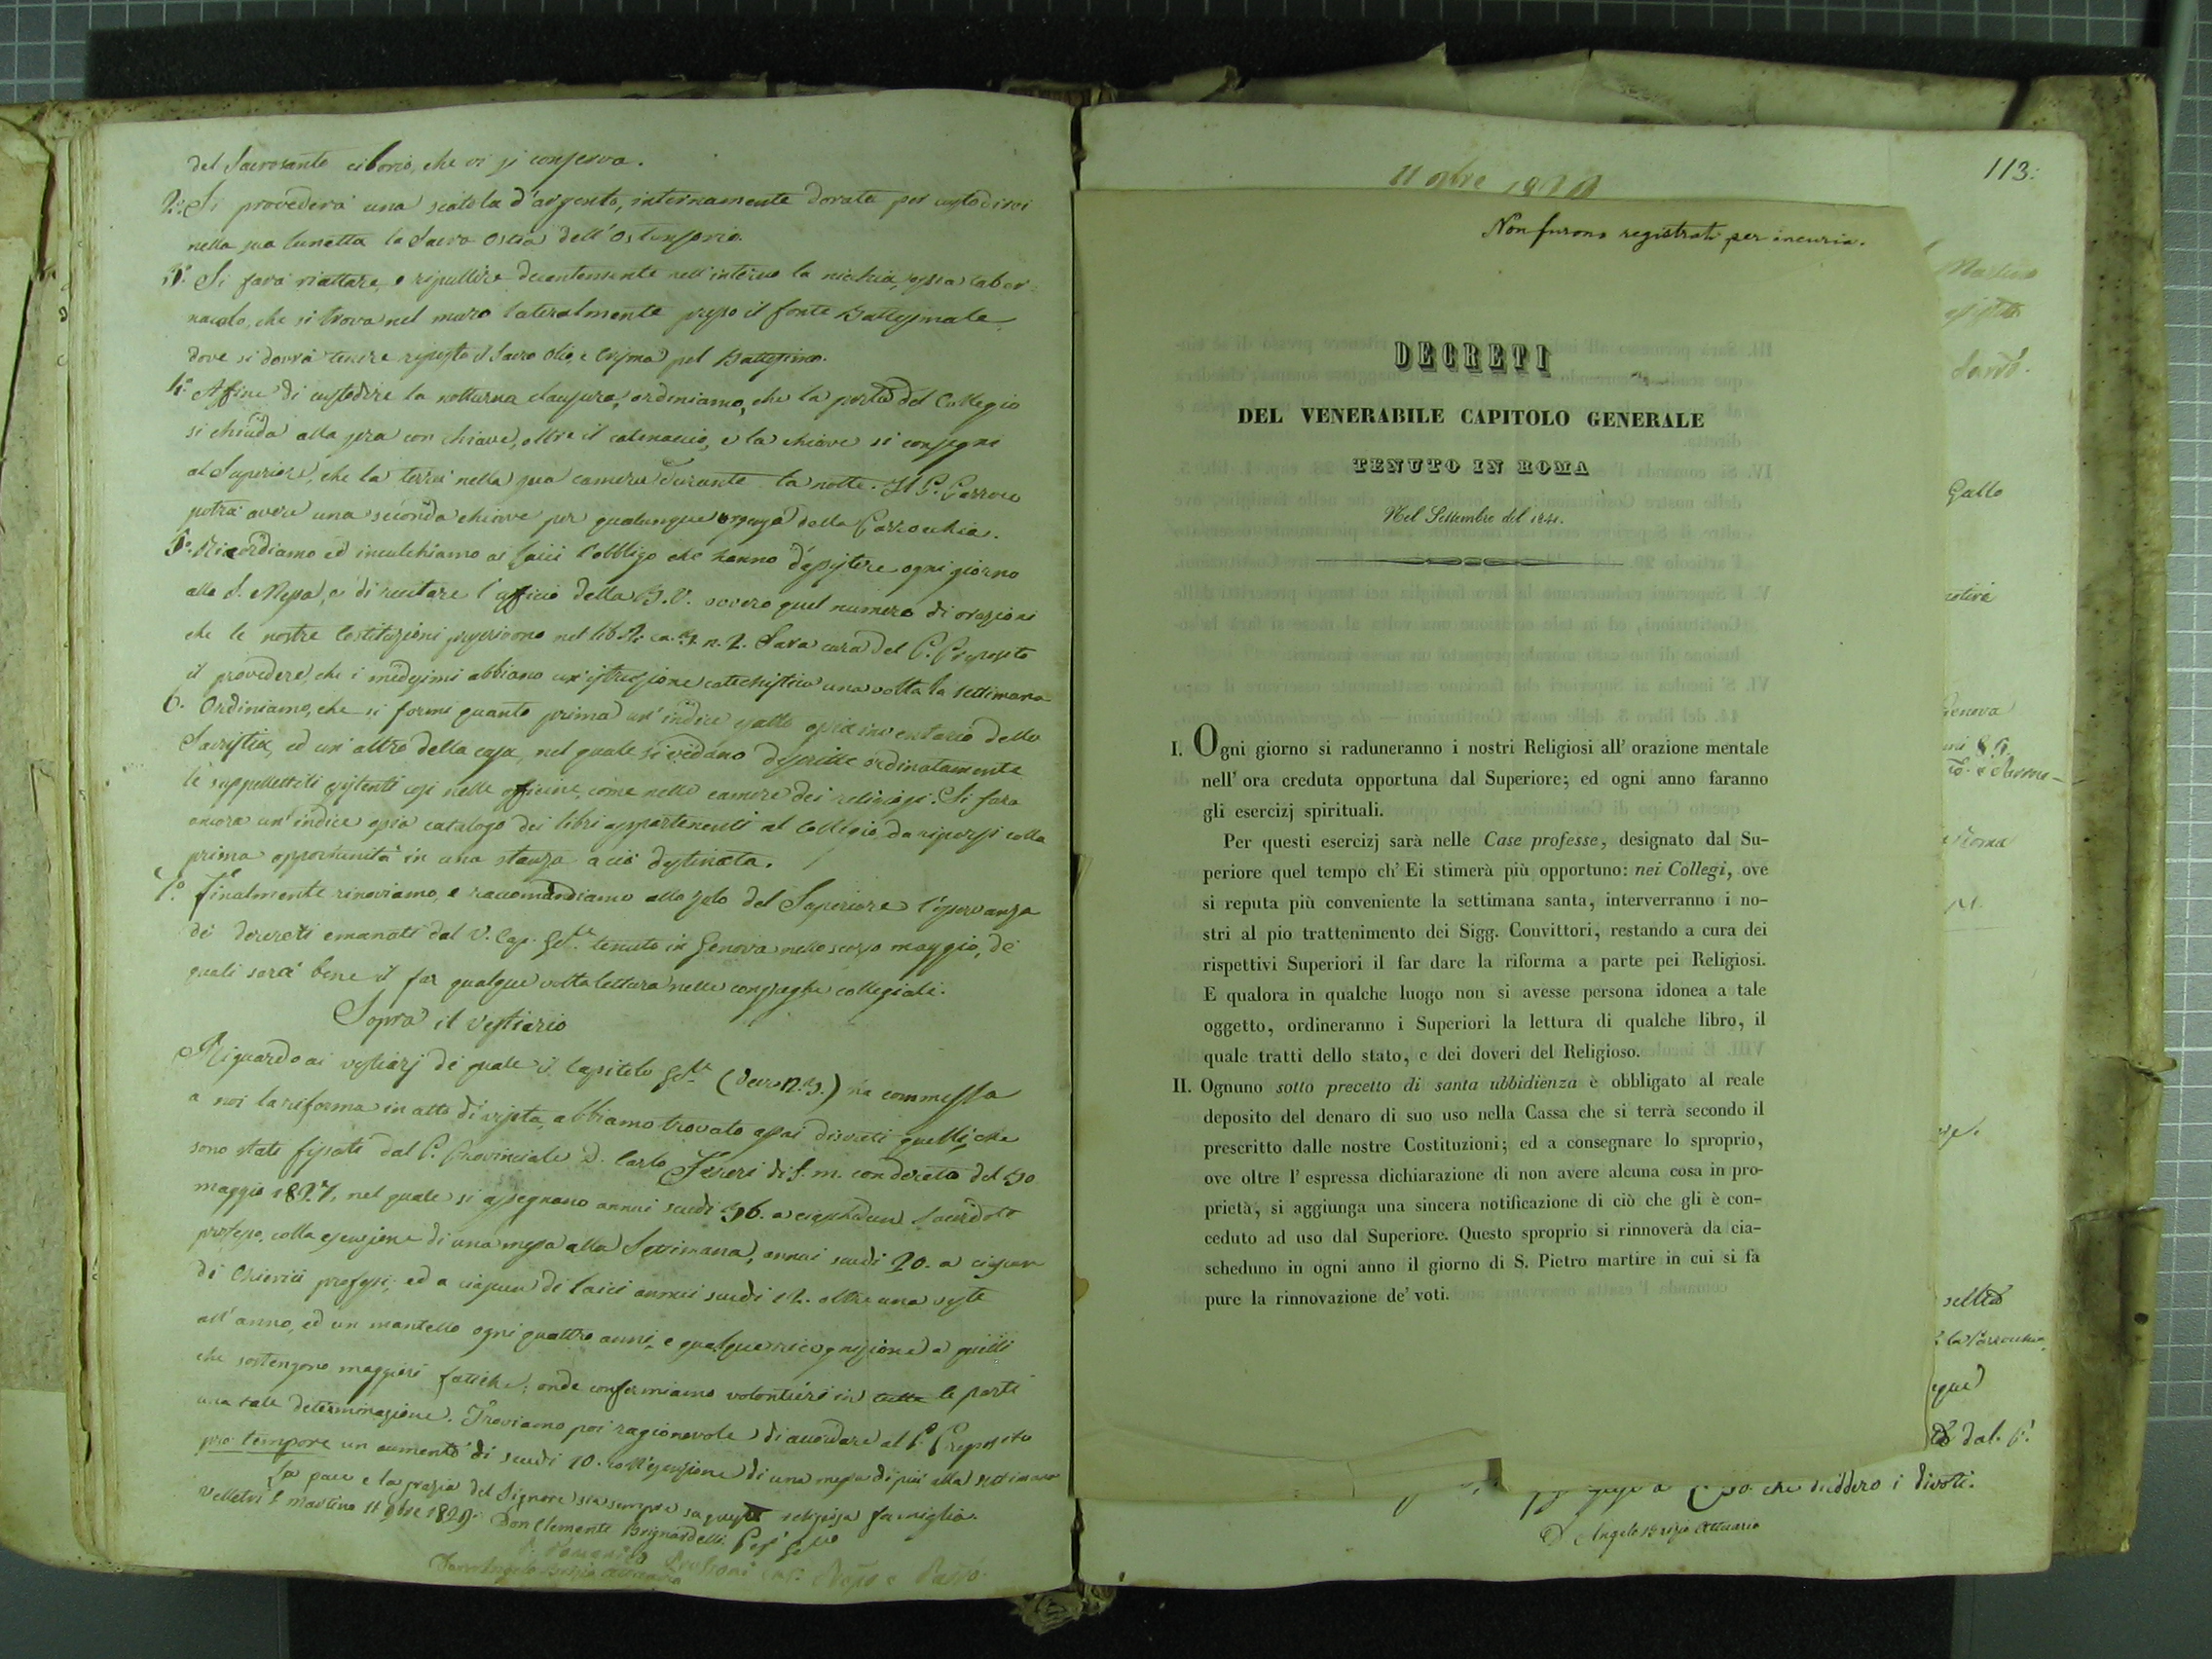 del Sacrosanto ciborio, che vi si conserva.
2.° Si provederà una scatola d'argento, internamente dorata per custodirvi
nella sua lunetta la Sacra Ostia dell'Ostensorio.
3.° Si farà riattare, e ripullire decentemente nell'interno la nichia, ossia taber=
nacolo, che si trova nel muro lateralmente presso il fonte Battesimale,
dove si dovrà tenere riposto il Sacro Olio, e Crisma pel Battesimo.
4.° Affine di custodire la notturna clausura, ordiniamo, che la porta del Collegio
si chiuda alla sera con chiave, oltre il catenaccio, e la chiave si consegni
al Superiore, che la terrà nella sua camera durante la notte. Il P. Parroco
potrà avere una seconda chiave per qualunque urgenza della Parrocchia.
5.° Ricordiamo ed inculchiamo ai Laici l'obbligo che hanno d'assistere ogni giorno
alla S. Messa, e di recitare l'officio della B.V. ovvero quel numero di orazioni
che le nostre Costituzioni prescrivono nel lib. ca. n. 2. Sarà cura del P. Preposito
il provedere, che i medesimi abbiano un'istruzione catechistica una volta la settimana
6. Ordiniamo, che si formi quanto prima un'indice esatto ossia inventario della
Sacristia, ed un'altro della casa, nel quale si vedano descritte ordinatamente
le suppellettili esistenti così nelle officine, come nelle camere dei religiosi. Si farà
ancora un'indice ossia catalogo dei libri appartenenti al Collegio, da riporsi colla
prima opportunità in una stanza a ciò destinata.
7.° Finalmente rinoviamo, e raccomandiamo allo zelo del Superiore l'osservanza
dei decreti emanati dal V. Cap. Gle tenuto in Genova nello scorso maggio, de'
quali sarà bene il far qualque volta lettura nelle congreghe collegiali.
Sopra il Vestiario
Riguardo ai vestiarj de' quale il Capitolo Gle (Decr. n. 3.) ha commessa
a noi la riforma in atto di visita, abbiamo trovato assai discreti quelli, che
sono stati fissati dal P. Provinciale D. Carlo Ferreri di f. m. con decreto del 30
maggio 1827, nel quale si assegnano annui scudi 36. a ciascheduno Sacerdote
professo, colla esenzione di una messa alla Settimana, annui scudi 20. a ciascun
di Chierici professi, ed a ciascun di laici annui scudi 12. oltre una veste
all'anno, ed un mantello ogni quattro anni, e qualque ricognizione a quelli
che sostengono maggiori fatiche; onde confermiamo volontieri in tutte le parti
una tale determinazione. Troviamo poi ragionevole di accordare al P. Preposito
pro tempore un aumento di scudi 10. coll'esenzione di una messa di più alla settimana
La pace e la grazia del Signore sia sempre su questa religiosa famiglia.
Velletri S. Martino 11 9bre 1829. Don Clemente Brignardelli Prep. Gle
Don Angelo Brizio Attuario
113.
11 9bre
Non furono registrati per incuria.
DECRETI
DEL VENERABILE CAPITOLO GENERALE
TENUTO IN ROMA
Nel Settembre del 1841.
I. Ogni giorno si raduneranno i nostri Religiosi all' orazione mentale
nell' ora creduta opportuna dal Superiore; ed ogni anno faranno
gli esercizj spirituali.
Per questi esercizj sarà nelle Case professe, designato dal Su-
periore quel tempo ch' Ei stimerà più opportuno: nei Collegi, ove
si reputa più conveniente la settimana santa, interverranno i no-
stri al pio trattenimento dei Sigg. Convittori, restando a cura dei
rispettivi Superiori il far dare la riforma a parte pei Religiosi.
E qualora in qualche luogo non si avesse persona idonea a tale
oggetto, ordineranno i Superiori la lettura di qualche libro, il
quale tratti dello stato, e dei doveri del Religioso.
II. Ognuno sotto precetto di santa ubbidienza è obbligato al reale
deposito del denaro di suo uso nella Cassa che si terrà secondo il
prescritto dalle nostre Costituzioni; ed a consegnare lo sproprio,
ove oltre l' espressa dichiarazione di non avere alcuna cosa in pro-
prietà, si aggiunga una sincera notificazione di ciò che gli è con-
ceduto ad uso dal Superiore. Questo sproprio si rinnoverà da cia-
scheduno in ogni anno il giorno di S. Pietro martire in cui si fa
pure la rinnovazione de' voti.
Martino
Gallo
Genova
Roma
la Parrocchia,
dal P.
che diedero i divoti.
D. Angelo Brizio Attuario